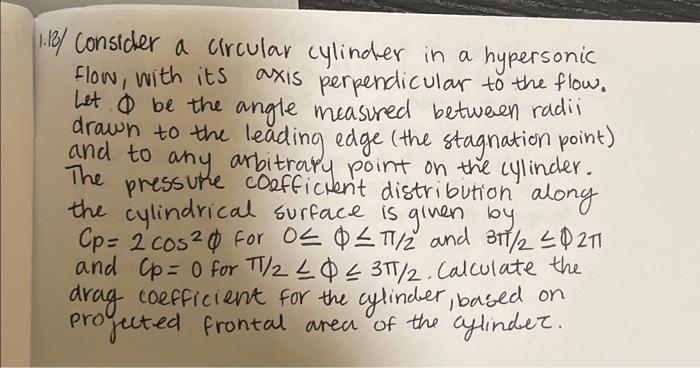 1.13/ Consider a circular cylinder in a hypersonic
flow, with its axis perpendicular to the flow.
Let Φ be the angle measured between radii
drawn to the leading edge (the stagnation point)
and to any arbitrary point on the cylinder.
The pressure coefficient distribution along
the cylindrical surface is given by
Cp= 2 cos²Φ for 0≤ Φ≤π/2 and 3π/2 ≤Φ 2π
and Cp= 0 for π/2 ≤ Φ ≤ 3π/2. Calculate the
drag coefficient for the cylinder, based on
projected frontal area of the cylinder.